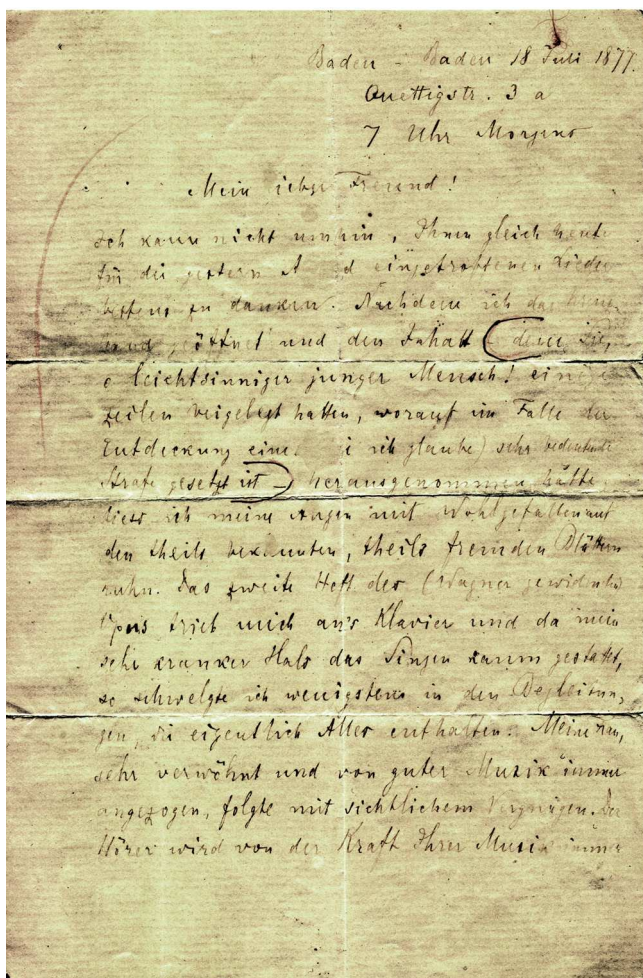 Baden - Baden 18 Juli 1877.
Quettigstr. 3 a
7 Uhr Morgens
Mein Freund!
Ich kann nicht umhin, Ihnen gleich heute
für die gestern eingetroffenen Lieder
bestens zu danken. Nachdem ich das
und geöffnet und den Inhalt (dem Sie,
o leichtsinniger junger Mensch! einige
Zeilen beigelegt hatten, worauf im Falle der
Entdeckung eine ich glaube) sehr bedeutende
Strafe gesetzt ist -) herausgenommen hätte,
liess ich meine Augen mit Wohlgefallen auf
den theils bekannten, theils fremden Blättern
ruhn. Das zweite Heft des (Wagner gewidmeten)
Opus trieb mich an's Klavier und da mein
sehr kranker Hals das Singen kaum gestattet,
so schwelgte ich wenigstens in den Begleitun-
gen, die eigentlich Alles enthalten. Meine
sehr verwöhnt und von guter Musik immer
angezogen, folgte mit sichtlichem Vergnügen. Der
Hörer wird von der Kraft Ihrer Musik immer